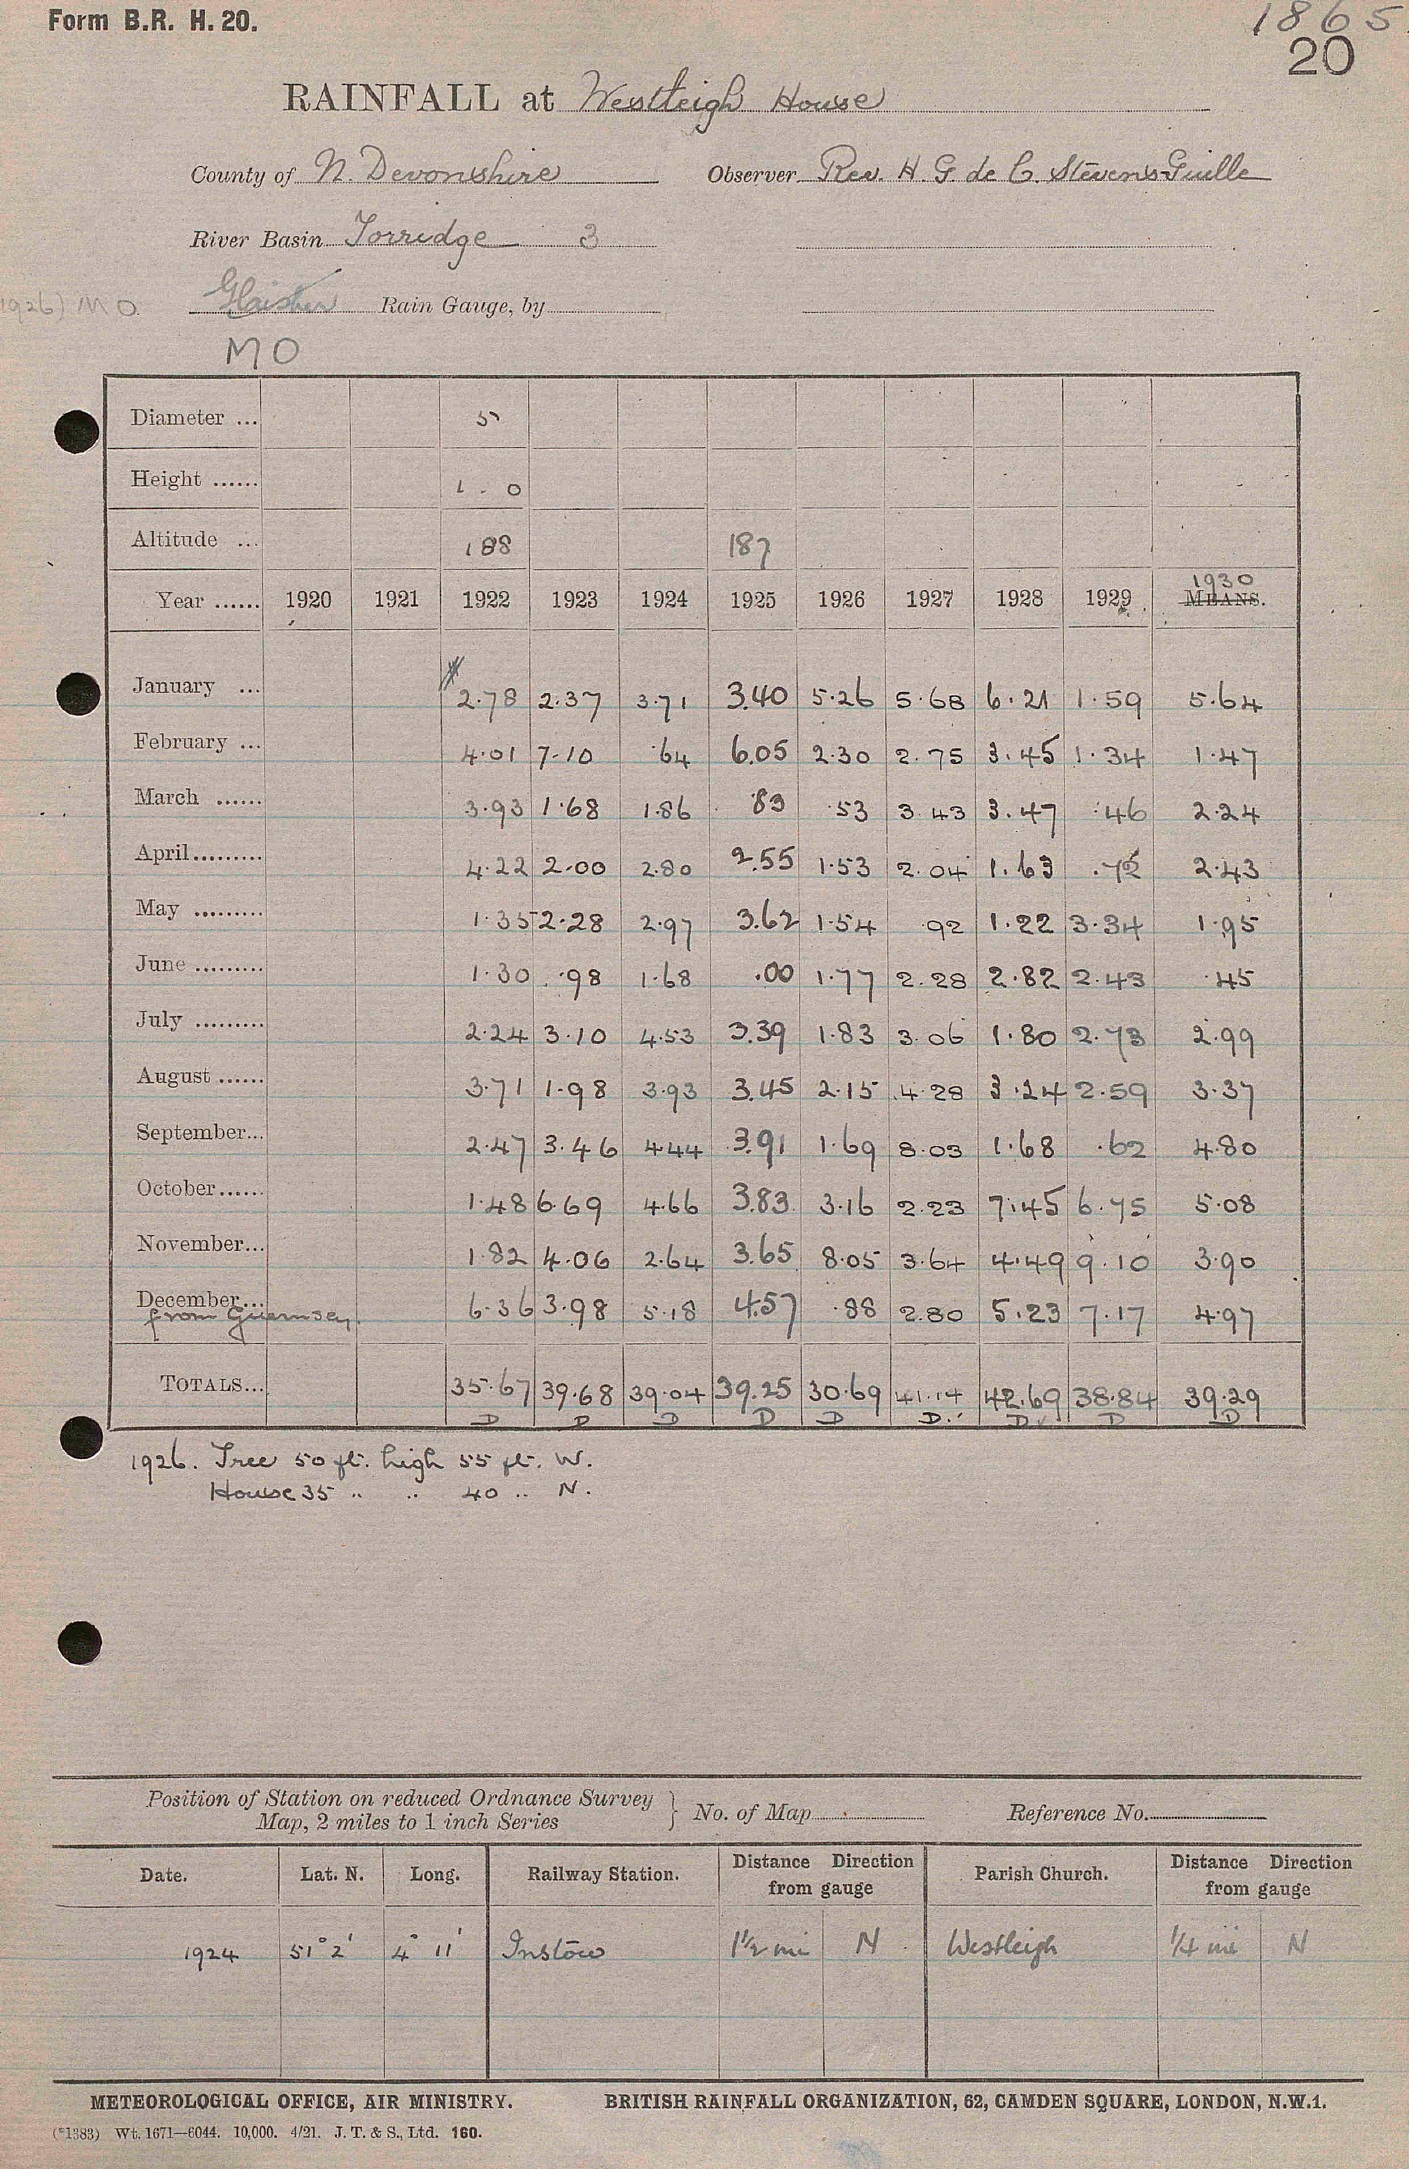 Form B.R. H. 20.
1865.
20
RAINFALL at Westleigh House
County of N. Devonshire Observer Rev. H. G. de C. Stevens-Guille
River Basin Torridge 3
1926) M O. Glaisher Rain Gauge, by
M O
Diameter ... 5
Height ...... 1 . 0
Altitude ... 188 187
1930
Year ...... 1920 1921 1922 1923 1924 1925 1926 1927 1928 1929 MEANS.
January ... 2.78 2.37 3.71 3.40 5.26 5.68 6.21 1.59 5.64
February ... 4.01 7.10 .64 6.05 2.30 2.75 3.45 1.34 1.47
March ...... 3.93 1.68 1.86 .83 .53 3.43 3.47 .46 2.24
April......... 4.22 2.00 2.80 2.55 1.53 2.04 1.63 .72 2.43
May ......... 1.35 2.28 2.97 3.62 1.54 .92 1.22 3.34 1.95
June ......... 1.30 .98 1.68 .00 1.77 2.28 2.82 2.43 .45
July ......... 2.24 3.10 4.53 3.39 1.83 3.06 1.80 2.73 2.99
August ...... 3.71 1.98 3.93 3.45 2.15 4.28 3.24 2.59 3.37
September... 2.47 3.46 4.44 3.91 1.69 8.03 1.68 .62 4.80
October...... 1.48 6.69 4.66 3.83 3.16 2.23 7.45 6.75 5.08
November... 1.82 4.06 2.64 3.65 8.05 3.64 4.49 9.10 3.90
December... 6.36 3.98 5.18 4.57 .88 2.80 5.23 7.17 4.97
from Guernsey.
TOTALS... 35.67 39.68 39.04 39.25 30.69 41.14 42.69 38.84 39.29
D D D D D D. D D D
1926. Tree 50 ft. high 55 ft. W.
House 35 " " 40 " N.
Position of Station on reduced Ordnance Survey
Map, 2 miles to 1 inch Series } No. of Map Reference No.
Date. Lat. N. Long. Railway Station. Distance Direction from gauge Parish Church. Distance Direction from gauge
1924 51° 2' 4° 11' Instow 1½ mi N. Westleigh ¼ mi N
METEOROLOGICAL OFFICE, AIR MINISTRY. BRITISH RAINFALL ORGANIZATION, 62, CAMDEN SQUARE, LONDON, N.W.1.
(*1383) Wt. 1671—6044. 10,000. 4/21. J. T. & S., Ltd. 160.